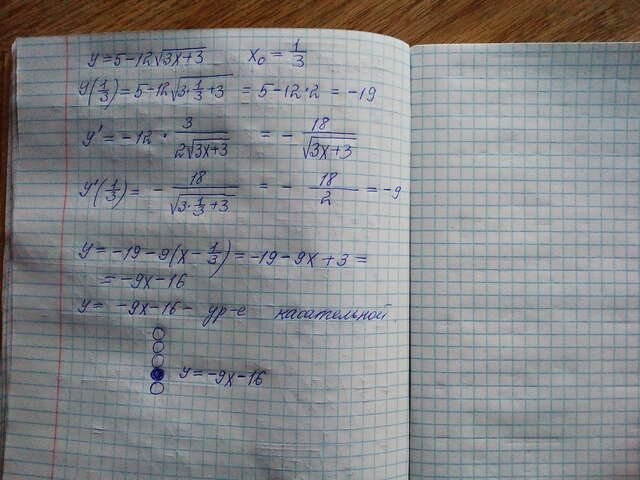 y = 5 - 12√(3x+3)   x₀ = 1/3
y(1/3) = 5 - 12√(3·1/3+3) = 5 - 12·2 = -19
y' = -12 · 3/(2√(3x+3)) = - 18/√(3x+3)
y'(1/3) = - 18/√(3·1/3+3) = - 18/2 = -9
y = -19 - 9(x - 1/3) = -19 - 9x + 3 =
= -9x - 16
y = -9x - 16 - ур-е касательной.
y = -9x - 16